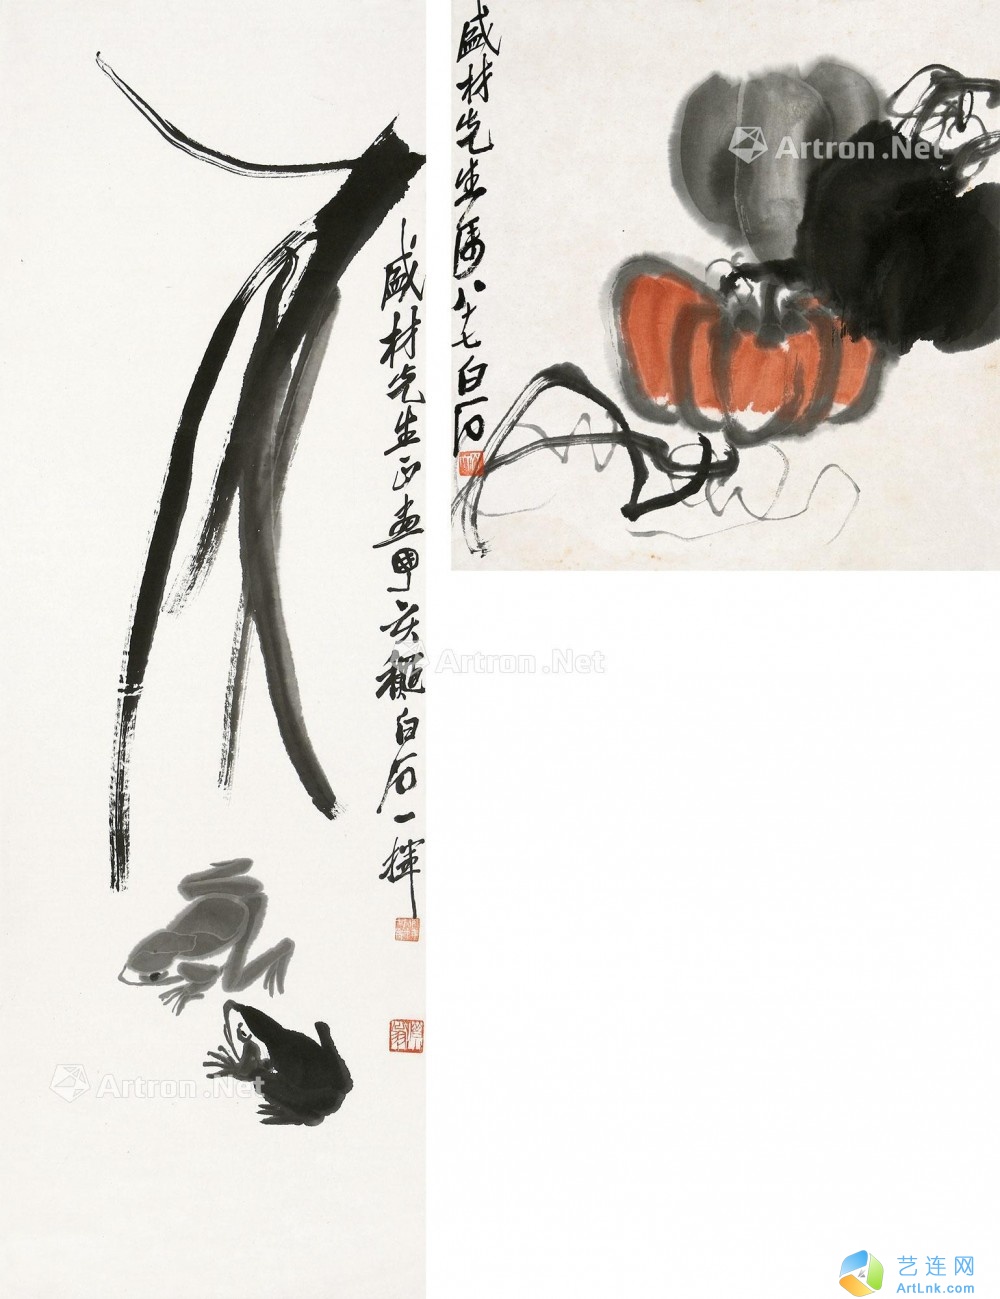 盛材先生正画甲戌秋白石一挥
盛材先生属八十七白石
Artron.Net
Artron.Net
Artron.Net
艺连网
ArtLnk.com